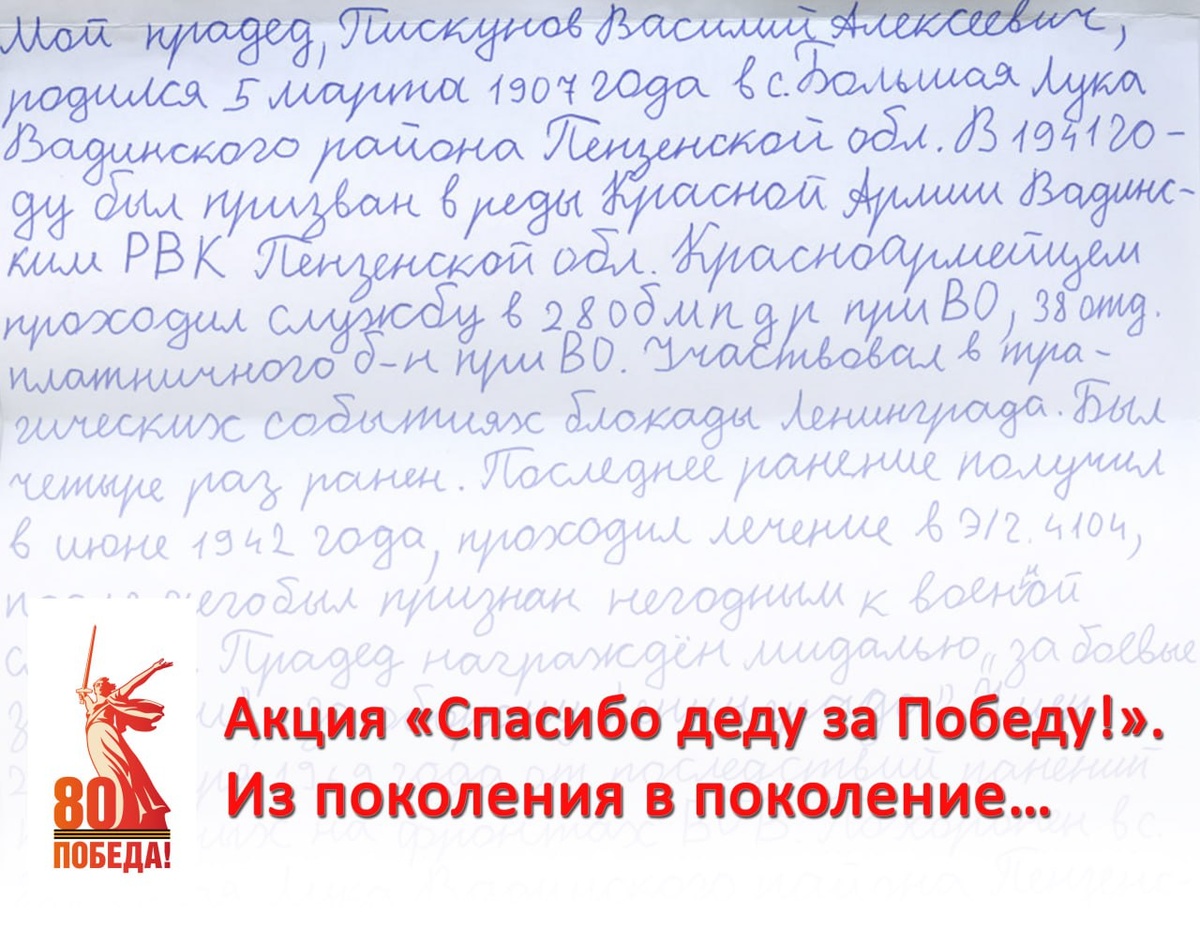 Мой прадед, Пискунов Василий Алексеевич,
родился 5 марта 1907 года в с. Большая Лука
Вадинского района Пензенской обл. В 1941 го-
ду был призван в реды Красной Армии Вадинс-
ким РВК Пензенской обл. Красноармейцем
проходил службу в 280бмпдр при ВО, 38 отд.
платничного б-н при ВО. Участвовал в тра-
гических событиях блокады Ленинграда. Был
четыре раз ранен. Последнее ранение получил
в июне 1942 года, проходил лечение в Э/г. 4104,
чего был признан негодным к военной
Прадед награждён мидалью „за боевые
Акция «Спасибо деду за Победу!».
1949 года от последствий ранений
Из поколения в поколение...
на фронтах ВОВ. Похоронен в с.
Лука Вадинского района Пензенс-
80
ПОБЕДА!